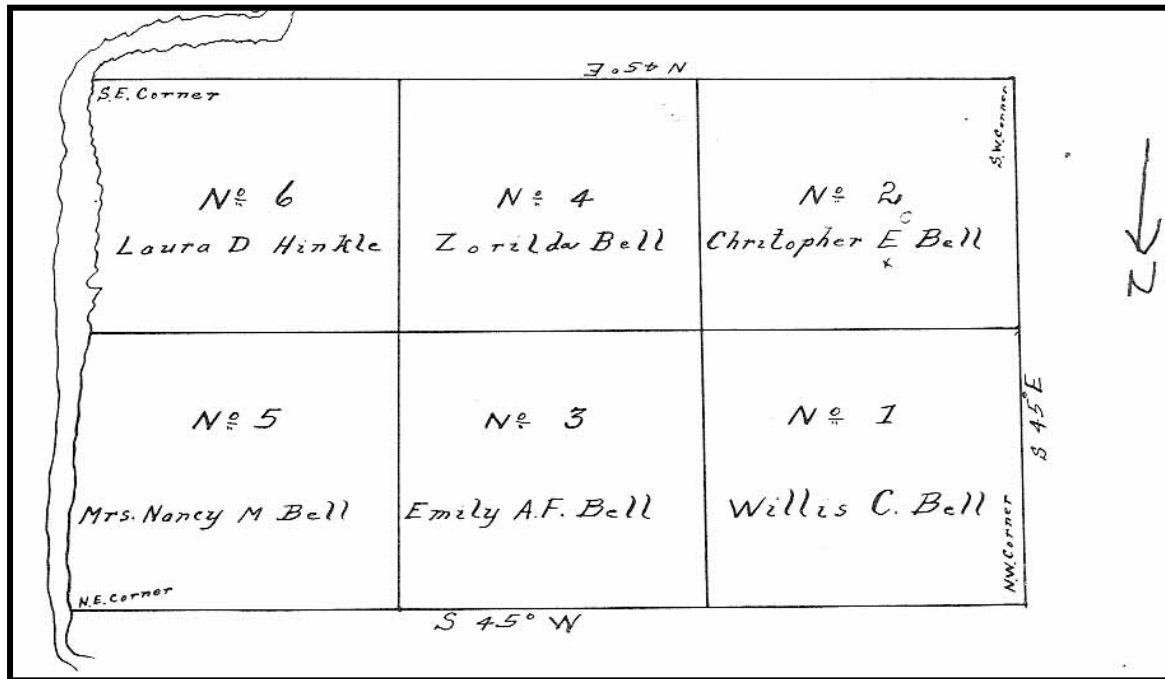 N 45° E
S.E. Corner
S.W. Corner
Nº 6
Laura D Hinkle
Nº 4
Zorilda Bell
Nº 2
C
Chritopher E Bell
x
N
S 45° E
Nº 5
Mrs. Nancy M Bell
Nº 3
Emily A.F. Bell
Nº 1
Willis C. Bell
N.E. Corner
N.W. Corner
S 45° W